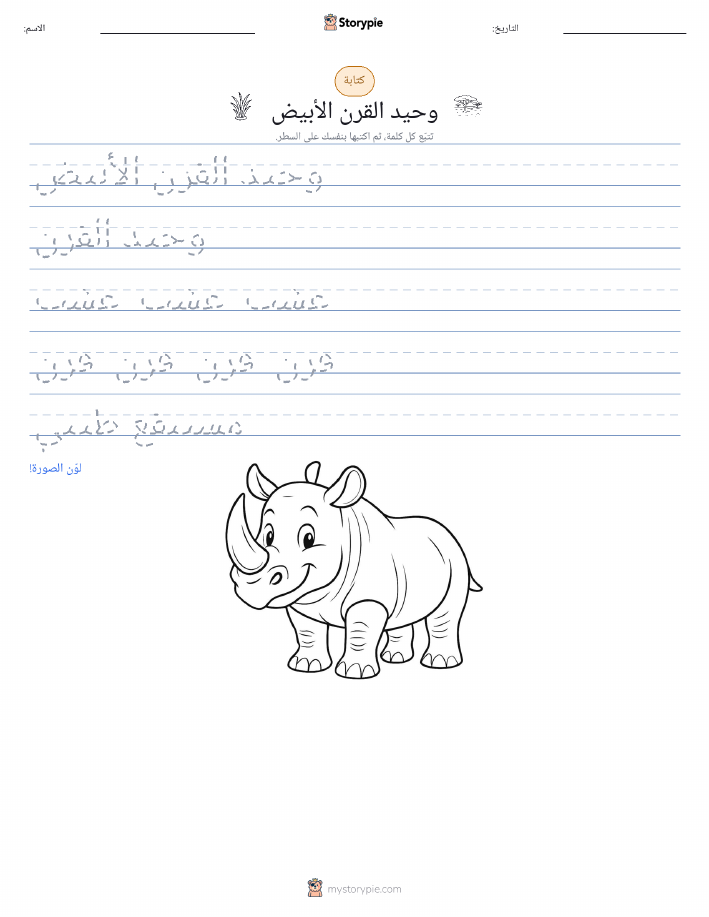 Storypie
الاسم:
التاريخ:
كتابة
وحيد القرن الأبيض
تتبّع كل كلمة، ثم اكتبها بنفسك على السطر.
وحيد القرن الأبيض
وحيد القرن
عشب عشب عشب
قرن قرن قرن قرن
مستنقع طيني
لوّن الصورة!
mystorypie.com